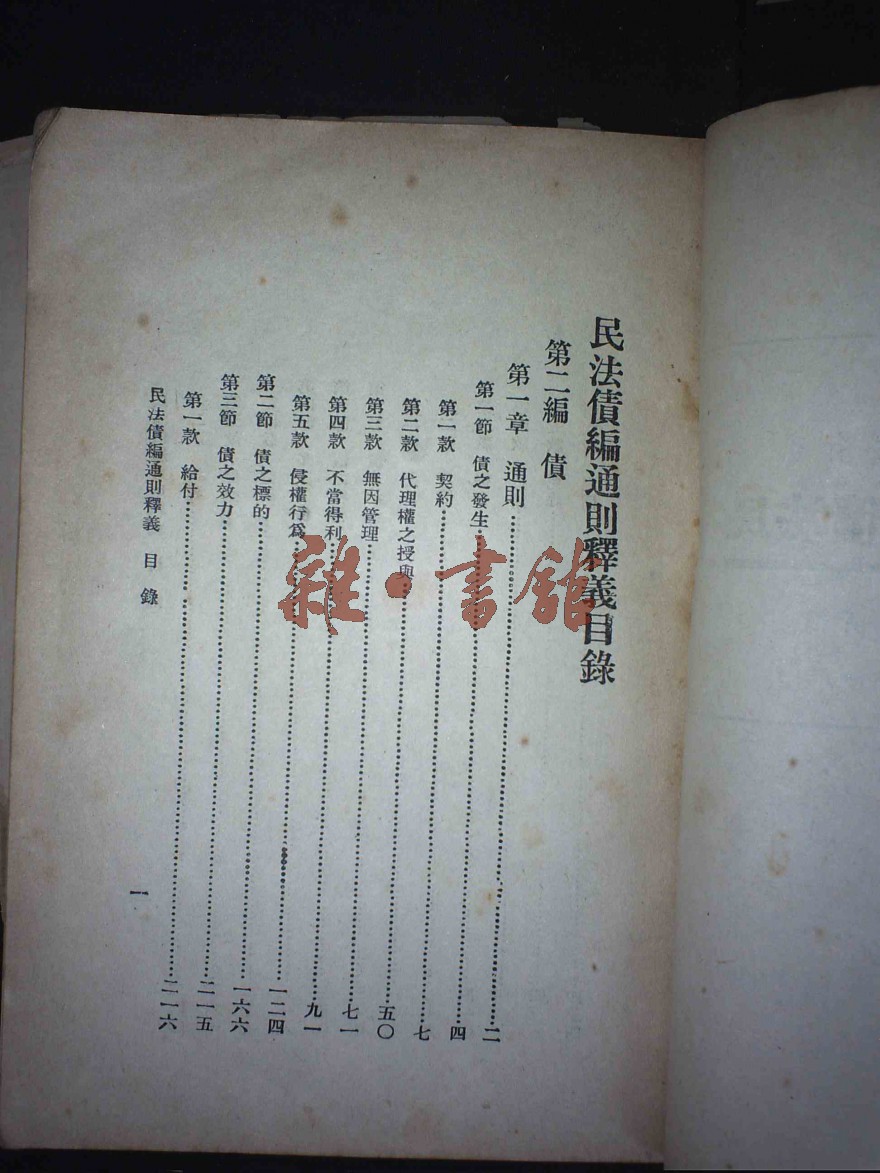 民法債編通則釋義目錄
第二編 債
第一章 通則……二
第一節 債之發生……四
第一款 契約……七
第二款 代理權之授與……五〇
第三款 無因管理……七一
第四款 不當得利……九一
第五款 侵權行爲……一二四
第二節 債之標的……一六六
第三節 債之效力……二一五
第一款 給付……二一六
民法債編通則釋義 目錄
一
雜·書館